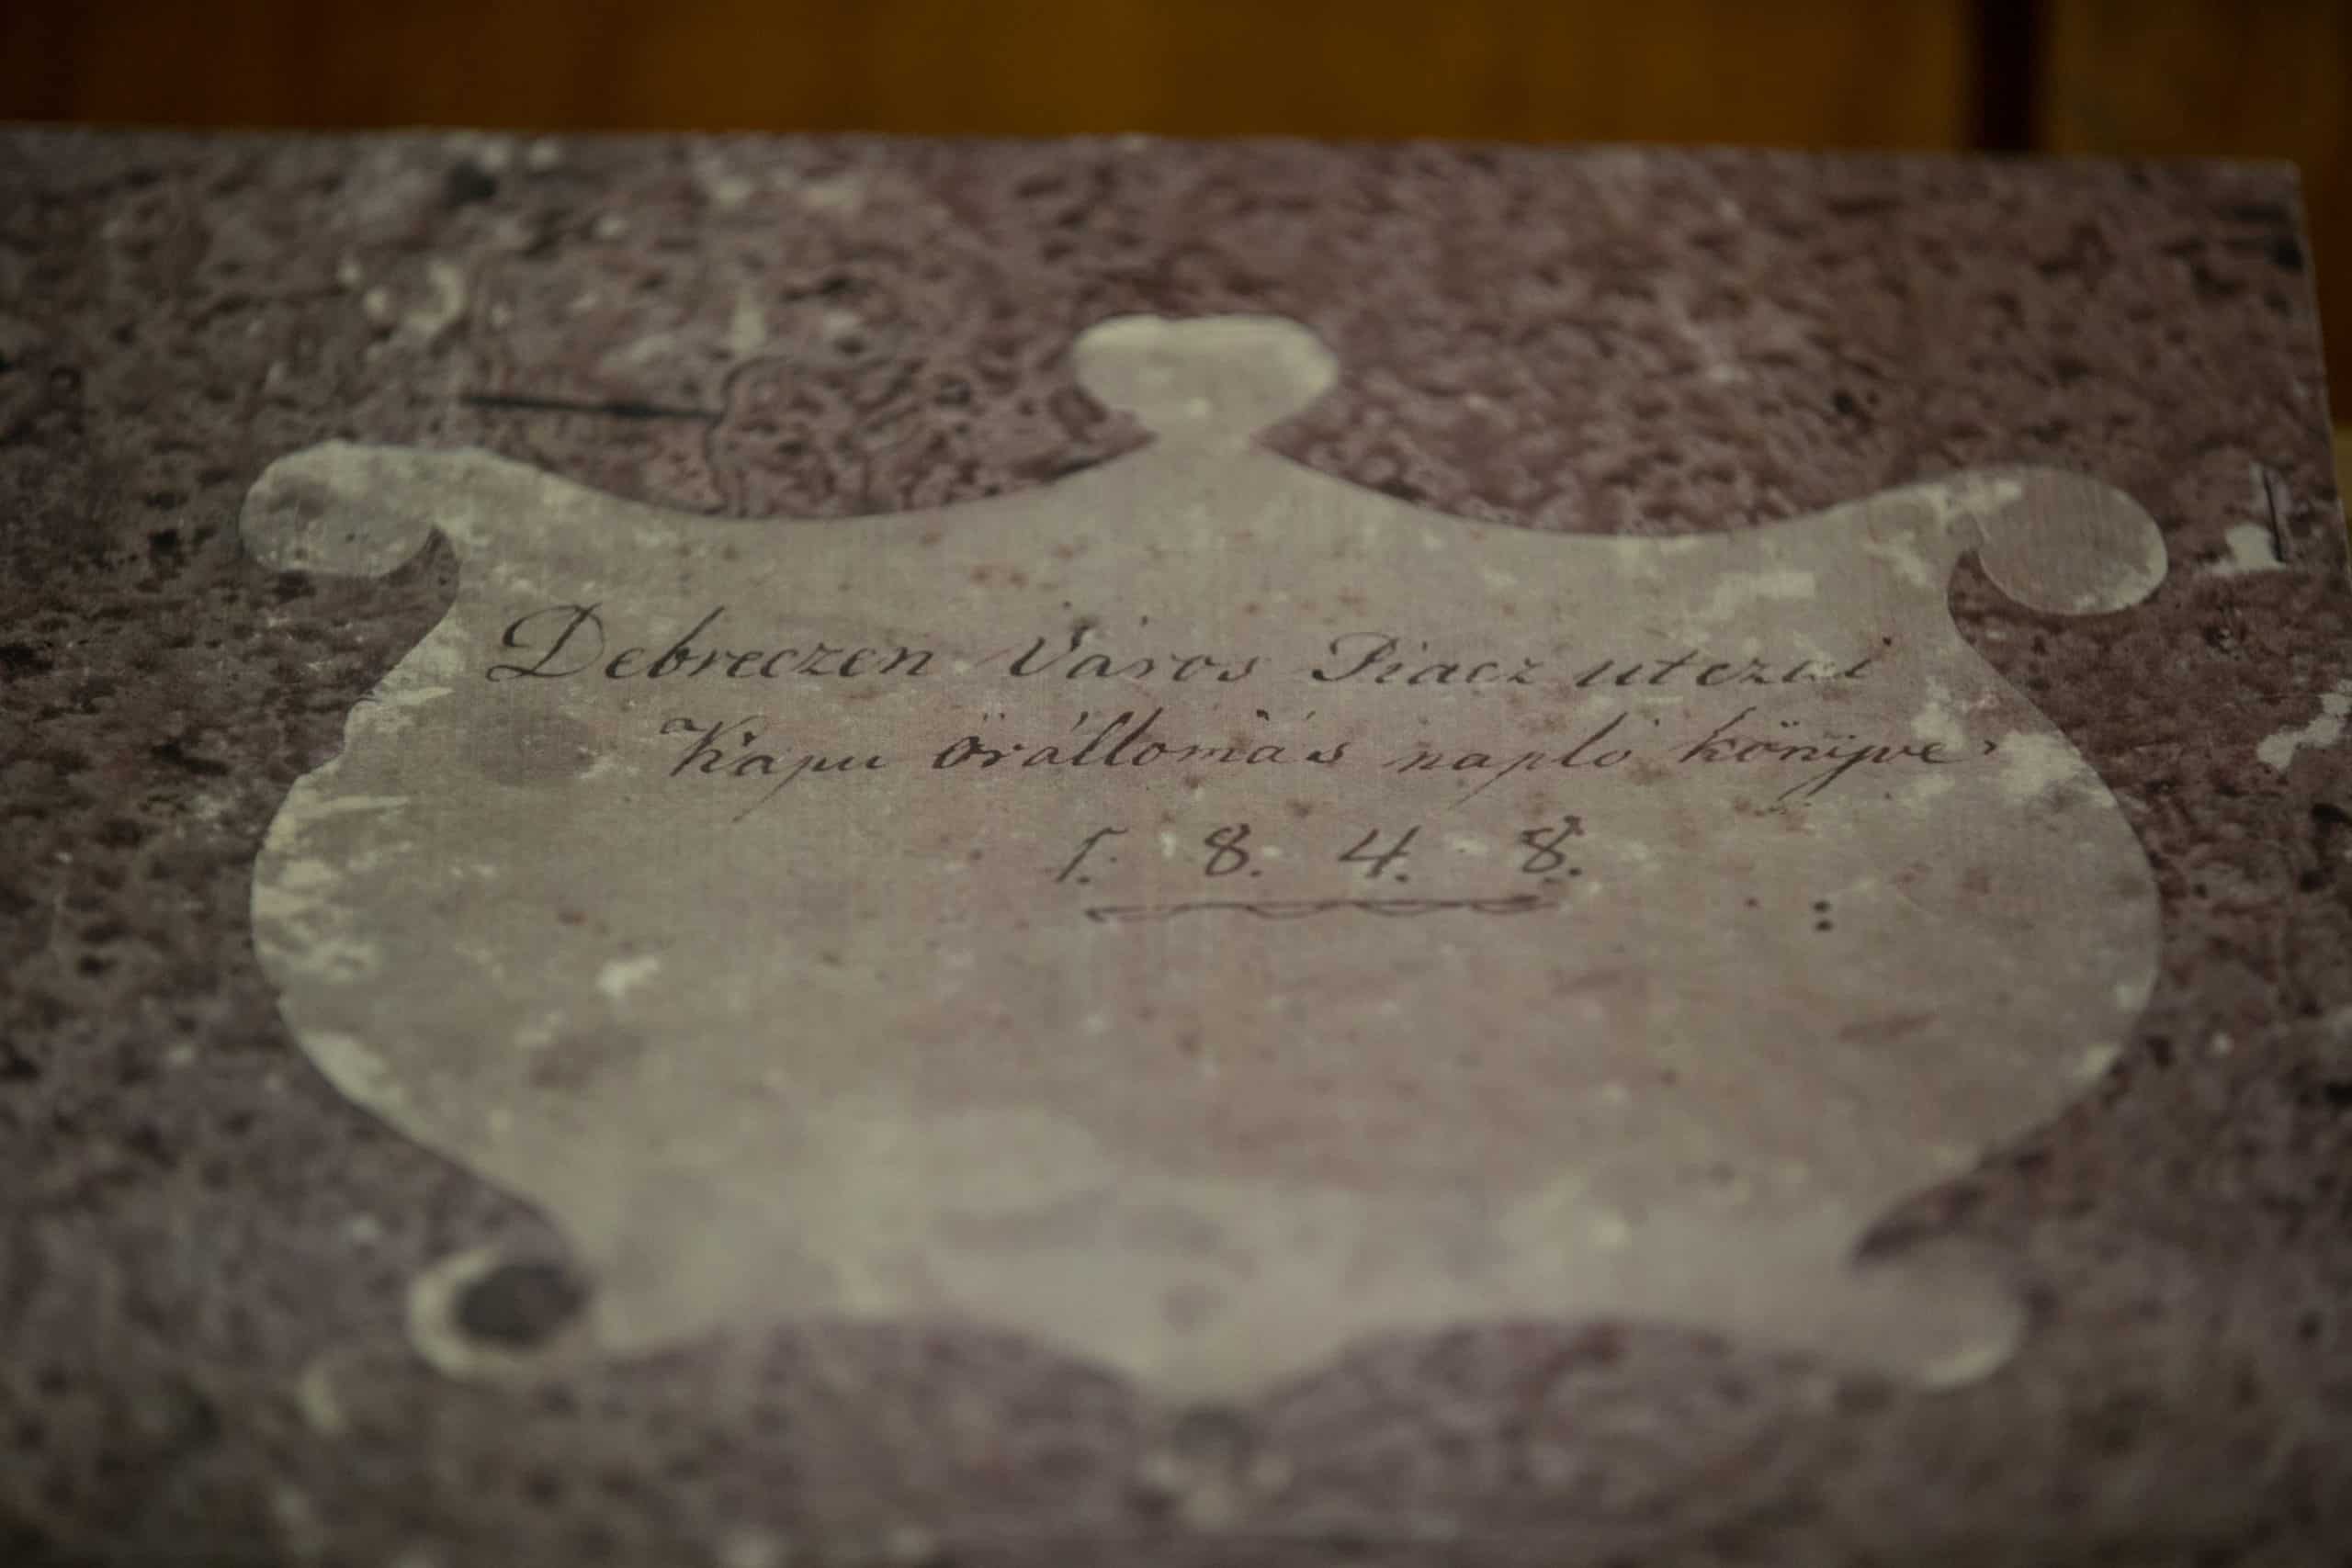 Debreczen Város Piacz utczai
Kapu örállomás napló könyve
1. 8. 4. 8.